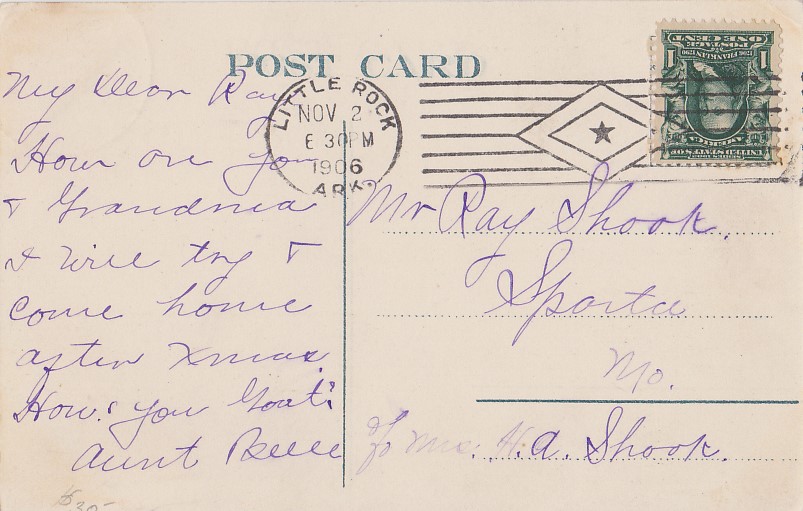 POST CARD
LITTLE ROCK
NOV 2
6 30PM
1906
ARK.
ONE CENT
1 1
My Dear Ray
How are you
& Grandma
I will try &
come home
after Xmas.
How's you Goat?
Aunt Belle
Mr Ray Shook.
Sparta
Mo.
c/o Mrs. H.A. Shook.